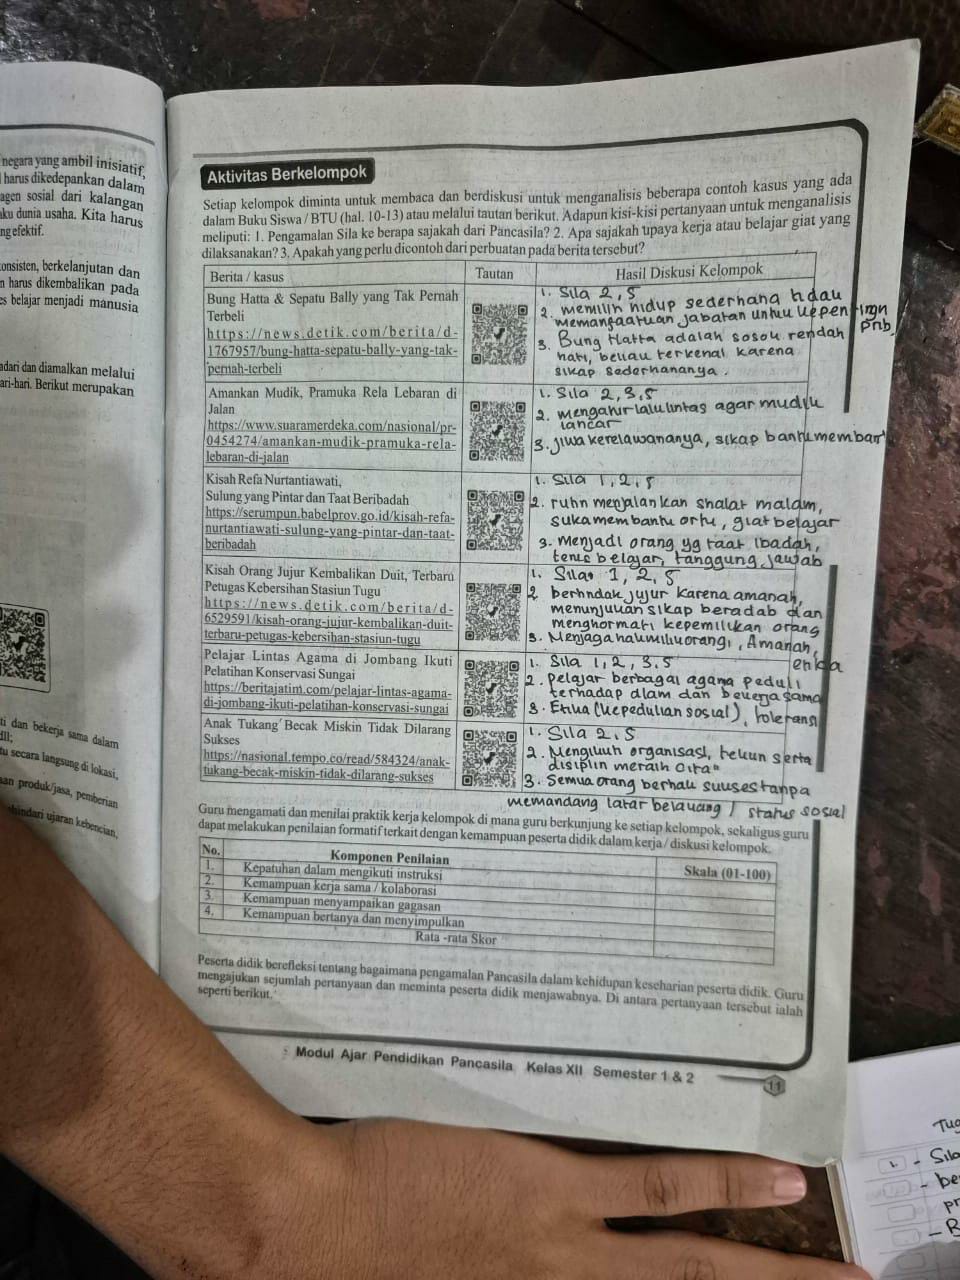 negara yang ambil inisiatif,
harus dikedepankan dalam
agen sosial dari kalangan
aku dunia usaha. Kita harus
ng efektif.
onsisten, berkelanjutan dan
n harus dikembalikan pada
es belajar menjadi manusia
adari dan diamalkan melalui
ari-hari. Berikut merupakan
ti dan bekerja sama dalam
dll;
tu secara langsung di lokasi,
an produk/jasa, pemberian
hindari ujaran kebencian,
Aktivitas Berkelompok
Setiap kelompok diminta untuk membaca dan berdiskusi untuk menganalisis beberapa contoh kasus yang ada
dalam Buku Siswa / BTU (hal. 10-13) atau melalui tautan berikut. Adapun kisi-kisi pertanyaan untuk menganalisis
meliputi: 1. Pengamalan Sila ke berapa sajakah dari Pancasila? 2. Apa sajakah upaya kerja atau belajar giat yang
dilaksanakan? 3. Apakah yang perlu dicontoh dari perbuatan pada berita tersebut?
Berita / kasus
Tautan
Hasil Diskusi Kelompok
Bung Hatta & Sepatu Bally yang Tak Pernah
Terbeli
https://news.detik.com/berita/d-
1767957/bung-hatta-sepatu-bally-yang-tak-
pernah-terbeli
1. Sila 2,5
2. memilih hidup sederhana tdau
memanfaatuan jabatan untuu kepentingn
Prib
3. Bung Hatta adalah sosou rendah
hati, beliau terkenal karena
sikap sederhananya.
Amankan Mudik, Pramuka Rela Lebaran di
Jalan
https://www.suaramerdeka.com/nasional/pr-
0454274/amankan-mudik-pramuka-rela-
lebaran-di-jalan
1. Sila 2,3,5
2. mengatur lalulintas agar mudik
lancar
3. Jiwa kerelawananya, sikap bantu membant
Kisah Refa Nurtantiawati,
Sulung yang Pintar dan Taat Beribadah
https://serumpun.babelprov.go.id/kisah-refa-
nurtantiawati-sulung-yang-pintar-dan-taat-
beribadah
1. Sila 1,2,5
2. rutin menjalankan shalat malam,
suka membantu ortu, giat belajar
3. Menjadi orang yg taat ibadah,
terus belajar, tanggung jawab
Kisah Orang Jujur Kembalikan Duit, Terbaru
Petugas Kebersihan Stasiun Tugu
https://news.detik.com/berita/d-
6529591/kisah-orang-jujur-kembalikan-duit-
terbaru-petugas-kebersihan-stasiun-tugu
1. Sila 1,2,5
2. bertindak jujur karena amanah,
menunjuuan sikap beradab dan
menghormati kepemilikan orang
3. Menjaga hakmilik orang, Amanah,
etika
Pelajar Lintas Agama di Jombang Ikuti
Pelatihan Konservasi Sungai
https://beritajatim.com/pelajar-lintas-agama-
di-jombang-ikuti-pelatihan-konservasi-sungai
1. Sila 1,2,3,5
2. pelajar berbagai agama peduli
terhadap alam dan bekerja sama
3. Etika (kepedulian sosial), toleransi
Anak Tukang Becak Miskin Tidak Dilarang
Sukses
https://nasional.tempo.co/read/584324/anak-
tukang-becak-miskin-tidak-dilarang-sukses
1. Sila 2,5
2. Mengikuti organisasi, tekun serta
disiplin meraih cita"
3. Semua orang berhak suuses tanpa
memandang latar belakang / status sosial
Guru mengamati dan menilai praktik kerja kelompok di mana guru berkunjung ke setiap kelompok, sekaligus guru
dapat melakukan penilaian formatif terkait dengan kemampuan peserta didik dalam kerja / diskusi kelompok.
No.
Komponen Penilaian
Skala (01-100)
1. Kepatuhan dalam mengikuti instruksi
2. Kemampuan kerja sama / kolaborasi
3. Kemampuan menyampaikan gagasan
4. Kemampuan bertanya dan menyimpulkan
Rata -rata Skor
Peserta didik berefleksi tentang bagaimana pengamalan Pancasila dalam kehidupan keseharian peserta didik. Guru
mengajukan sejumlah pertanyaan dan meminta peserta didik menjawabnya. Di antara pertanyaan tersebut ialah
seperti berikut.
Modul Ajar Pendidikan Pancasila Kelas XII Semester 1 & 2
11
Tug
1. - Sila
- be
pr
- B